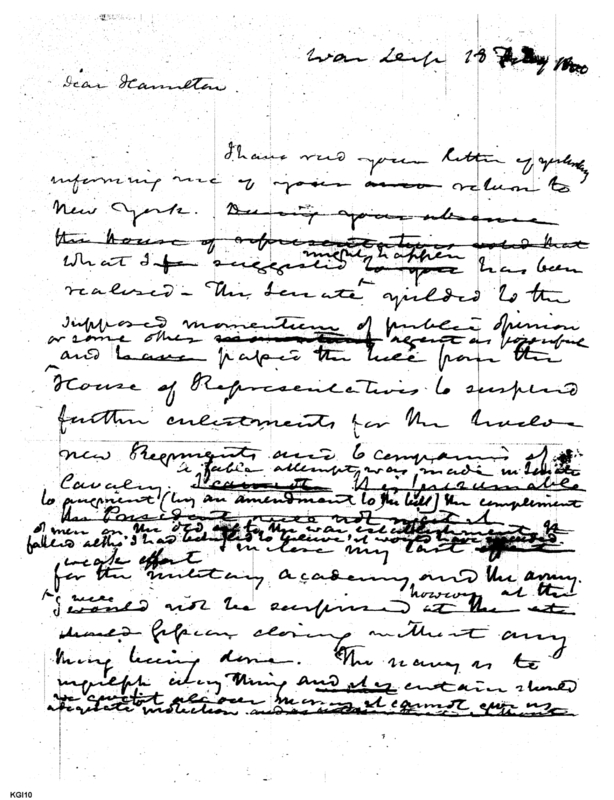 War Dep. 18 Feby 1800
Dear Hamilton.
I have recd your letter of yesterday
informing me of your return to
New York. During your absence
the house of representatives voted that
might happen
What I suggested to you has been
realised - The Senate yielded to the
supposed momentum of public opinion
or some other agent as powerful
and have passed the bill from the
House of Representatives to suspend
further enlistments for the twelve
new Regiments and 6 companies of
a feable attempt was made in Senate
Cavalry. I cannot It is presumable
to augment (by an amendment to the bill) the compliment
the President will not
of men on the old by the war establishment. It
failed altho' I had been led to believe it would have succeeded.
I inclose my last effort
weak effort
for the military academy and the army.
I will however at the
I would not be surprised at the
should Session closing without any
thing being done. The navy is to
ingulph every thing and it is certain should
we it cannot give us
adequate protection
KGI10